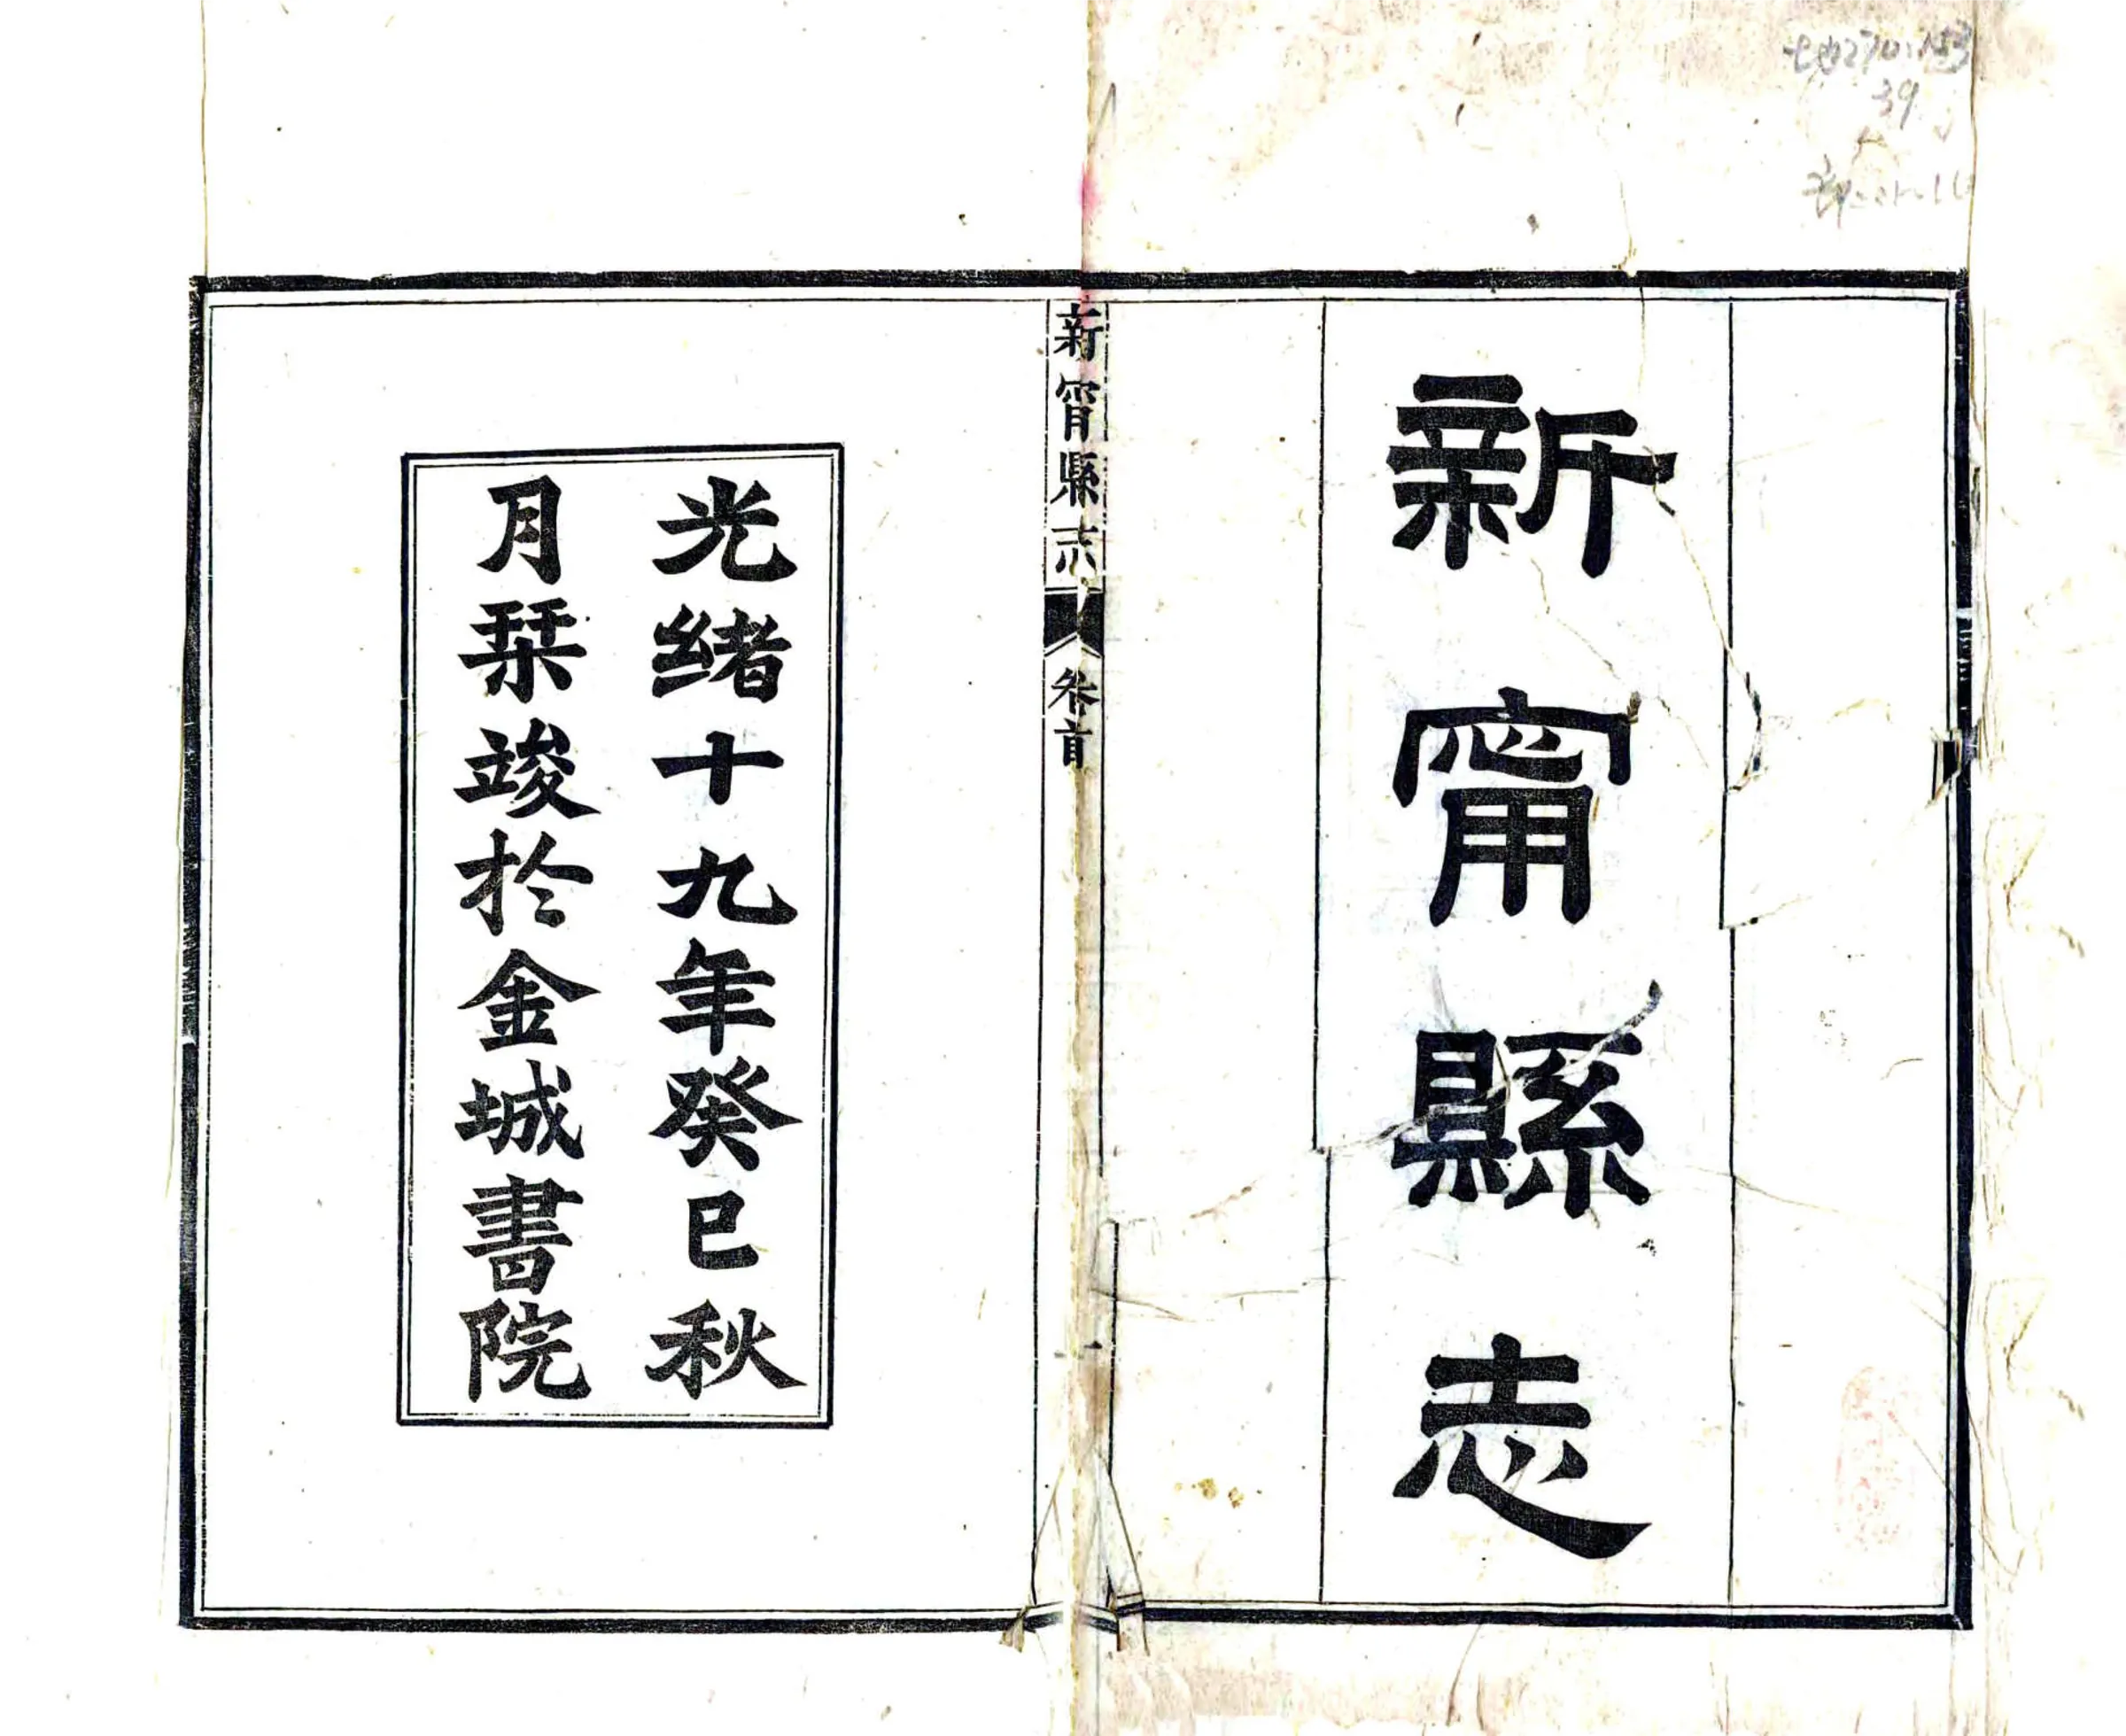 新甯縣志
新甯縣志
卷首
光緒十九年癸巳秋
月栞竣於金城書院
39